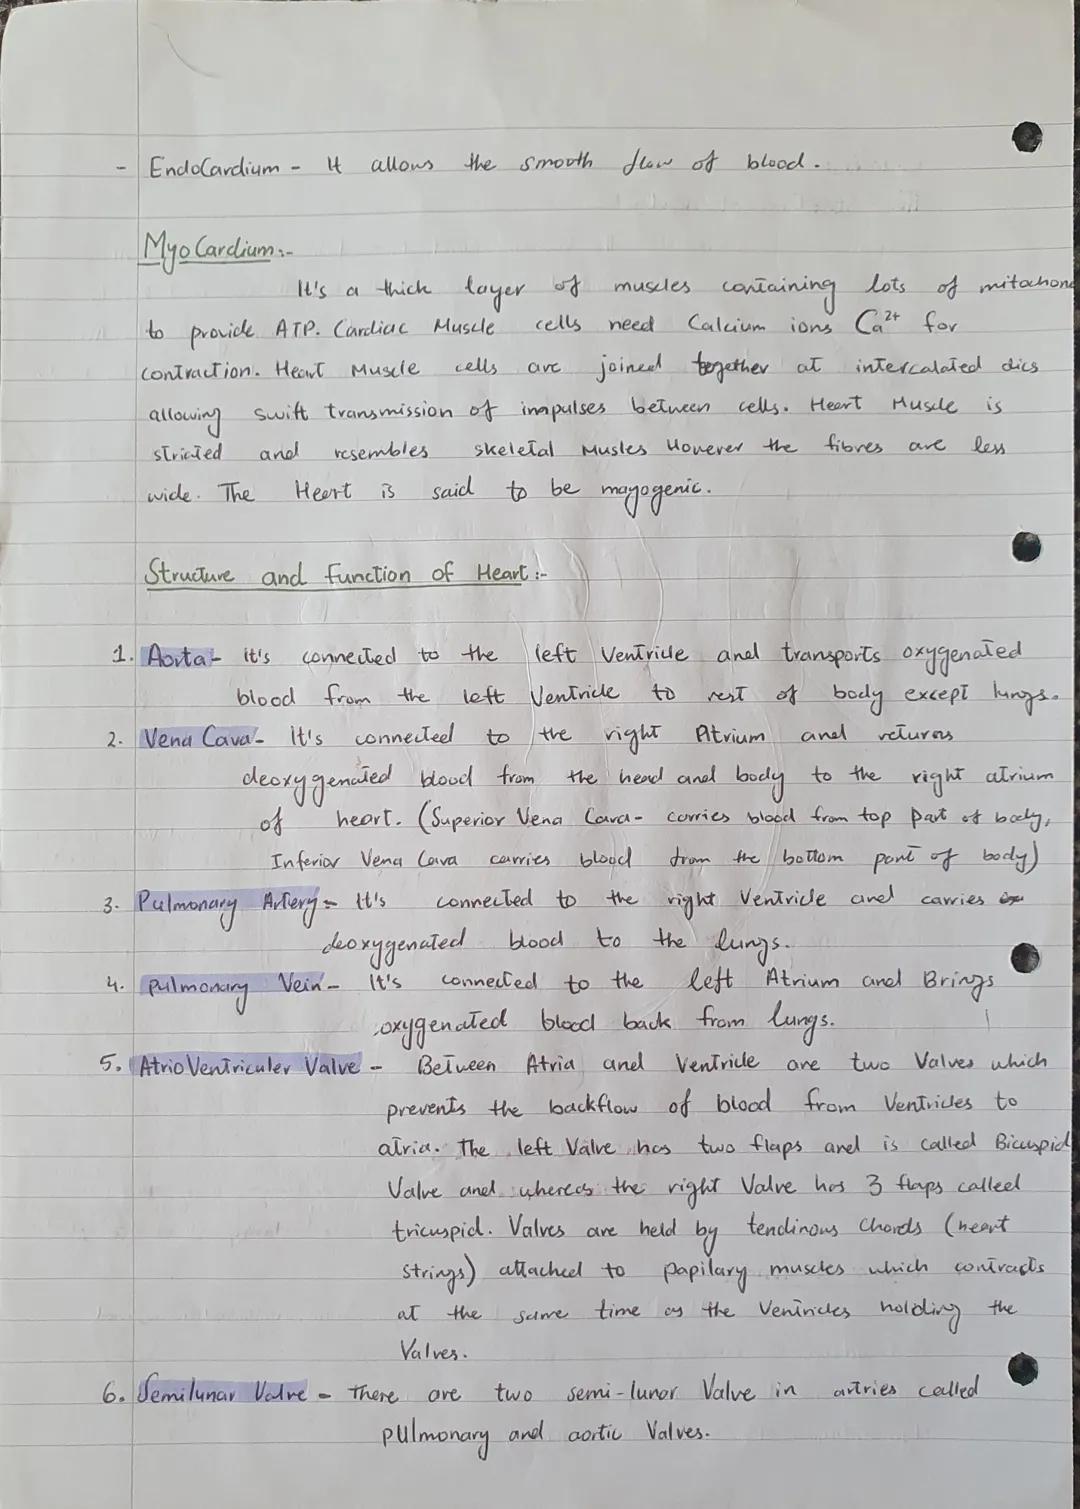 - EndoCardium - It allows the smooth flow of blood.
MyoCardium:-
It's a thick layer of muscles containing lots of mitochon
to provide ATP. Cardiac Muscle cells need Calcium ions Ca²⁺ for
contraction. Heart Muscle cells are joined together at intercalated dics
allowing swift transmission of impulses between cells. Heert Muscle is
stricted and resembles skeletal Musles However the fibres are less
wide. The Heert is said to be mayogenic.
Structure and function of Heart:-
1. Aorta- it's connected to the left Ventricle and transports oxygenated
blood from the left Ventricle to rest of body except lungs.
2. Vena Cava- It's connected to the right Atrium and returns
deoxygenated blood from the head and body to the right atrium
of heart. (Superior Vena Cava- carries blood from top part of body,
Inferior Vena Cava carries blood from the bottom part of body)
3. Pulmonary Artery- It's connected to the right Ventricle and carries
deoxygenated blood to the lungs.
4. pulmonary Vein- It's connected to the left Atrium and Brings
oxygenated blood back from lungs.
5. AtrioVentriculer Valve - Between Atria and Ventricle are two Valves which
prevents the backflow of blood from Ventricles to
atria. The left Valve has two flaps and is called Bicuspid
Valve and whereas the right Valve has 3 flaps called
tricuspid. Valves are held by tendinous Chords (heert
strings) attached to papilary muscles which contracts
at the same time as the Ventricles holding the
Valves.
6. Semilunar Valve - there are two semi-lunar Valve in artries called
pulmonary and aortic Valves.